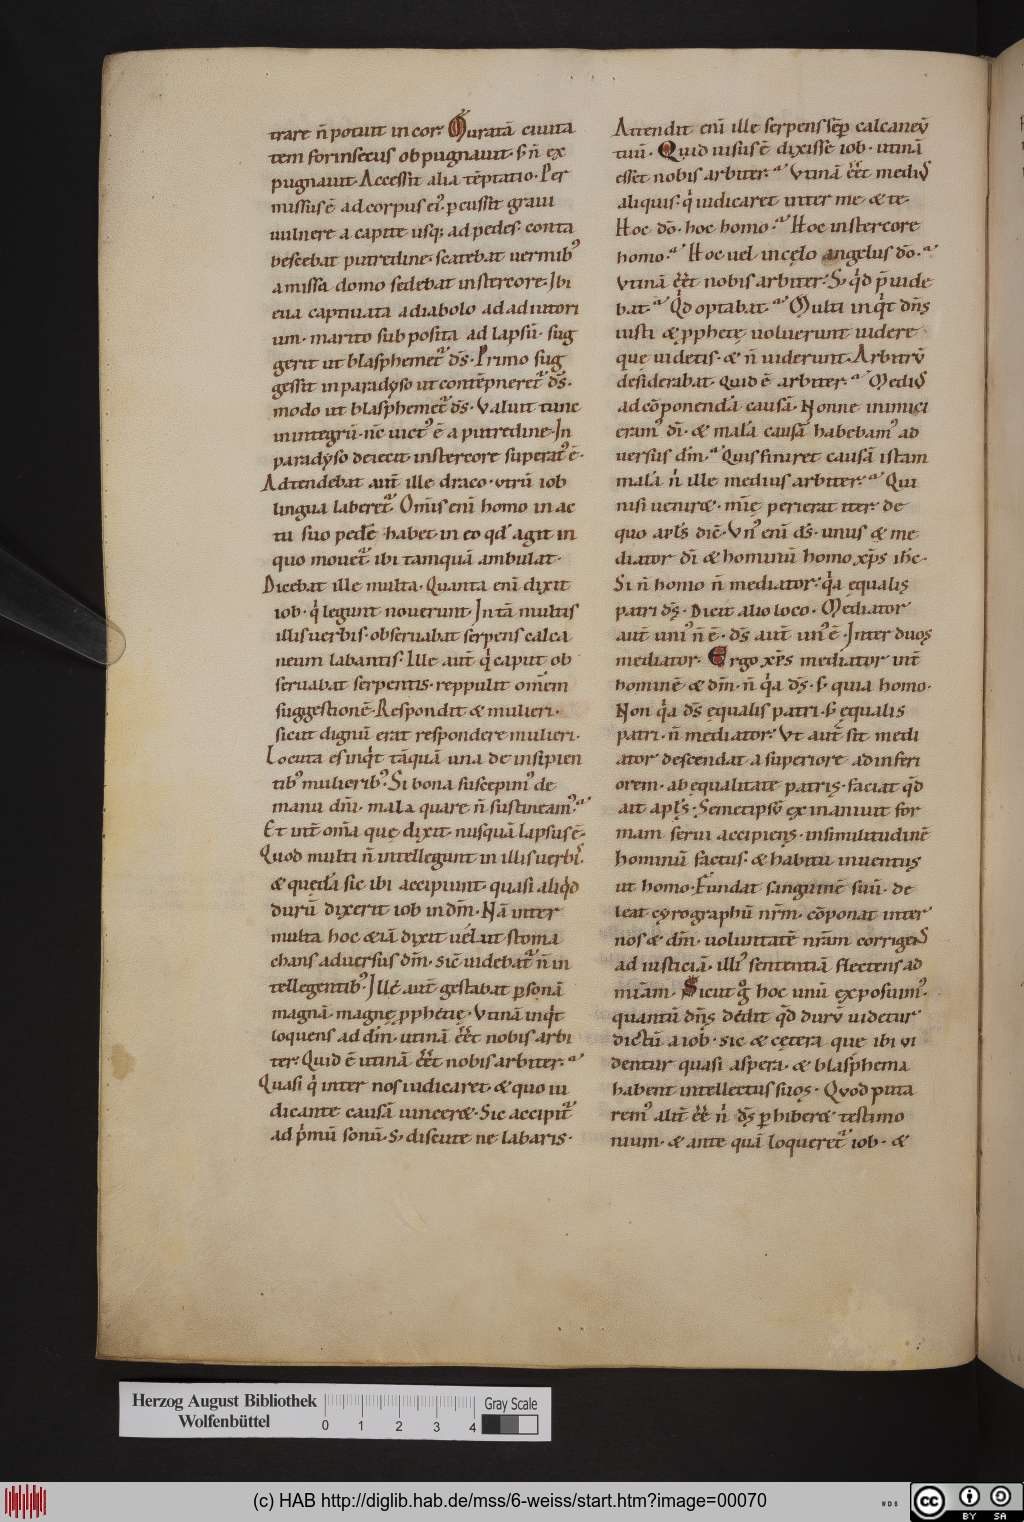 trare n̄ potuit in cor. Muratā ciuita
tem forinsecus obpugnauit. s; n̄ ex
pugnauit. Accessit alia tēptatio. Per
missus ē ad corpus ei᷒. pcussit graui
uulnere a capite usq; ad pedes. conta
bescebat putredine. scatebat uermib᷒
amissa domo sedebat in stercore. Ibi
eua captiuata a diabolo ad adiutori
um. marito subposita ad lapsū. sug
gerit ut blasphemet᷑ d̄s. Primo sug
gessit in paradyso ut contēpneret᷑ d̄s.
modo ut blasphemet᷑ d̄s. Valuit tunc
in integrū. nc̄ uict᷒ ē a putredine. In
paradyso deiecit. in stercore superat᷒ ē.
Adtendebat aut̄ ille draco. utrū iob
lingua laberet᷑. Om̄is eni̅ homo in ac
tu suo pedē habet. in eo qd̓ agit in
quo mouet᷑ ibi tamquā ambulat.
Dicebat ille multa. Quanta eni̅ dixit
iob. q̇ legunt nouerunt. In tā multis
illis uerbis. obseruabat serpens calca
neum labantis. Ille aut̄ q̇ caput ob
seruabat serpentis. reppulit om̄em
suggestionē. Respondit & mulieri.
sicut dignū erat respondere mulieri.
Locuta es inq̇t tāquā una de insipien
tib᷒ mulierib᷒. Si bona suscepim᷒ de
manu dn̄i. mala quare n̄ sustineam᷒.
Et int̄ om̄a quę dixit. nusquā lapsus ē.
Quod multi n̄ intellegunt in illis uerbis.
& quędā sic ibi accipiunt. quasi aliq̇d
durū dixerit iob in dm̄. Nā inter
multa hoc & iā dixit uelut stoma
chans aduersus dm̄. sic̄ uidebat᷑ n̄ in
tellegentib᷒. Ille aut̄ gestabat psonā
magnā. magnę pphetię. Vtinā inq̇t
loquens ad dm̄. utinā eēt nobis arbi
ter. Quid ē utinā eēt nobis arbiter.
Quasi q̇ inter nos iudicaret. & quo iu
dicante causā uincere. Sic accipit᷑
ad p̓mū sonū. S; discute ne labaris.
Attendit eni̅ ille serpens sēp calcaneū
tuū. Quid uisus ē dixisse iob. utinā
esset nobis arbiter. Vtinā eēt medi᷒
aliquis. q̇ iudicaret inter me & te.
Hoc do̅. hoc homo. Hoc in stercore
homo. Hoc uel in cęlo angelus do̅.
Vtinā eēt nobis arbiter. S; qd̓ p̄uide
bat. Qd̓ optabat. Multi inq̇t dn̄s
iusti & pphetę uoluerunt uidere
que uidetis. & n̄ uiderunt. Arbitrū
desiderabat. Quid ē arbiter. Medi᷒
ad cōponendā causā. Nonne inimici
eram᷒ di̅. & malā causā habebam᷒ ad
uersus dm̄. Quis finiret causā istam
malā n̓ ille medius arbiter. Qui
nisi ueniret. mi̅ę perierat iter. de
quo apl̄s dic̄. Vn᷒ eni̅ d̄s. unus & me
diator di̅ & hominū homo xp̄s ih̄c.
Si n̄ homo n̄ mediator. q̇a ęqualis
patri d̄s. Dicit alio loco. Mediator
aut̄ uni᷒ n̄ ē. d̄s aut̄ un᷒ ē. Inter duos
mediator. Ergo xp̄s mediator int̄
hominē & dm̄. n̄ q̇a d̄s. s; quia homo.
Non q̇a d̄s ęqualis patri. s; ęqualis
patri. n̄ mediator. Vt aut̄ sit medi
ator descendat a superiore ad inferi
orem. ab ęqualitate patris. faciat qd̓
ait apl̄s. Semetipsū exinaniuit for
mam serui accipiens. in similitudinē
hominū factus. & habitu inuentus
ut homo. Fundat sanguinē suū. de
leat cyrographū nr̄m. cōponat inter
nos & dm̄. uoluntatē nr̄am corrigens
ad iusticiā. illi᷒ sententiā flectens ad
mi̅am. Sicut g̊ hoc unū exposuim᷒.
quantū dn̄s dedit qd̓ durū uidetur
dictū a iob. sic & cętera que ibi ui
dentur quasi aspera. & blasphema
habent intellectus suos. Quod puta
rem᷒ alit̄ eē. n̓ d̄s phiberet testimo
nium. & ante quā loqueret᷑ iob. &
Herzog August Bibliothek
Wolfenbüttel
0 1 2 3 4
Gray Scale
(c) HAB http://diglib.hab.de/mss/6-weiss/start.htm?image=00070
WDB
cc BY SA